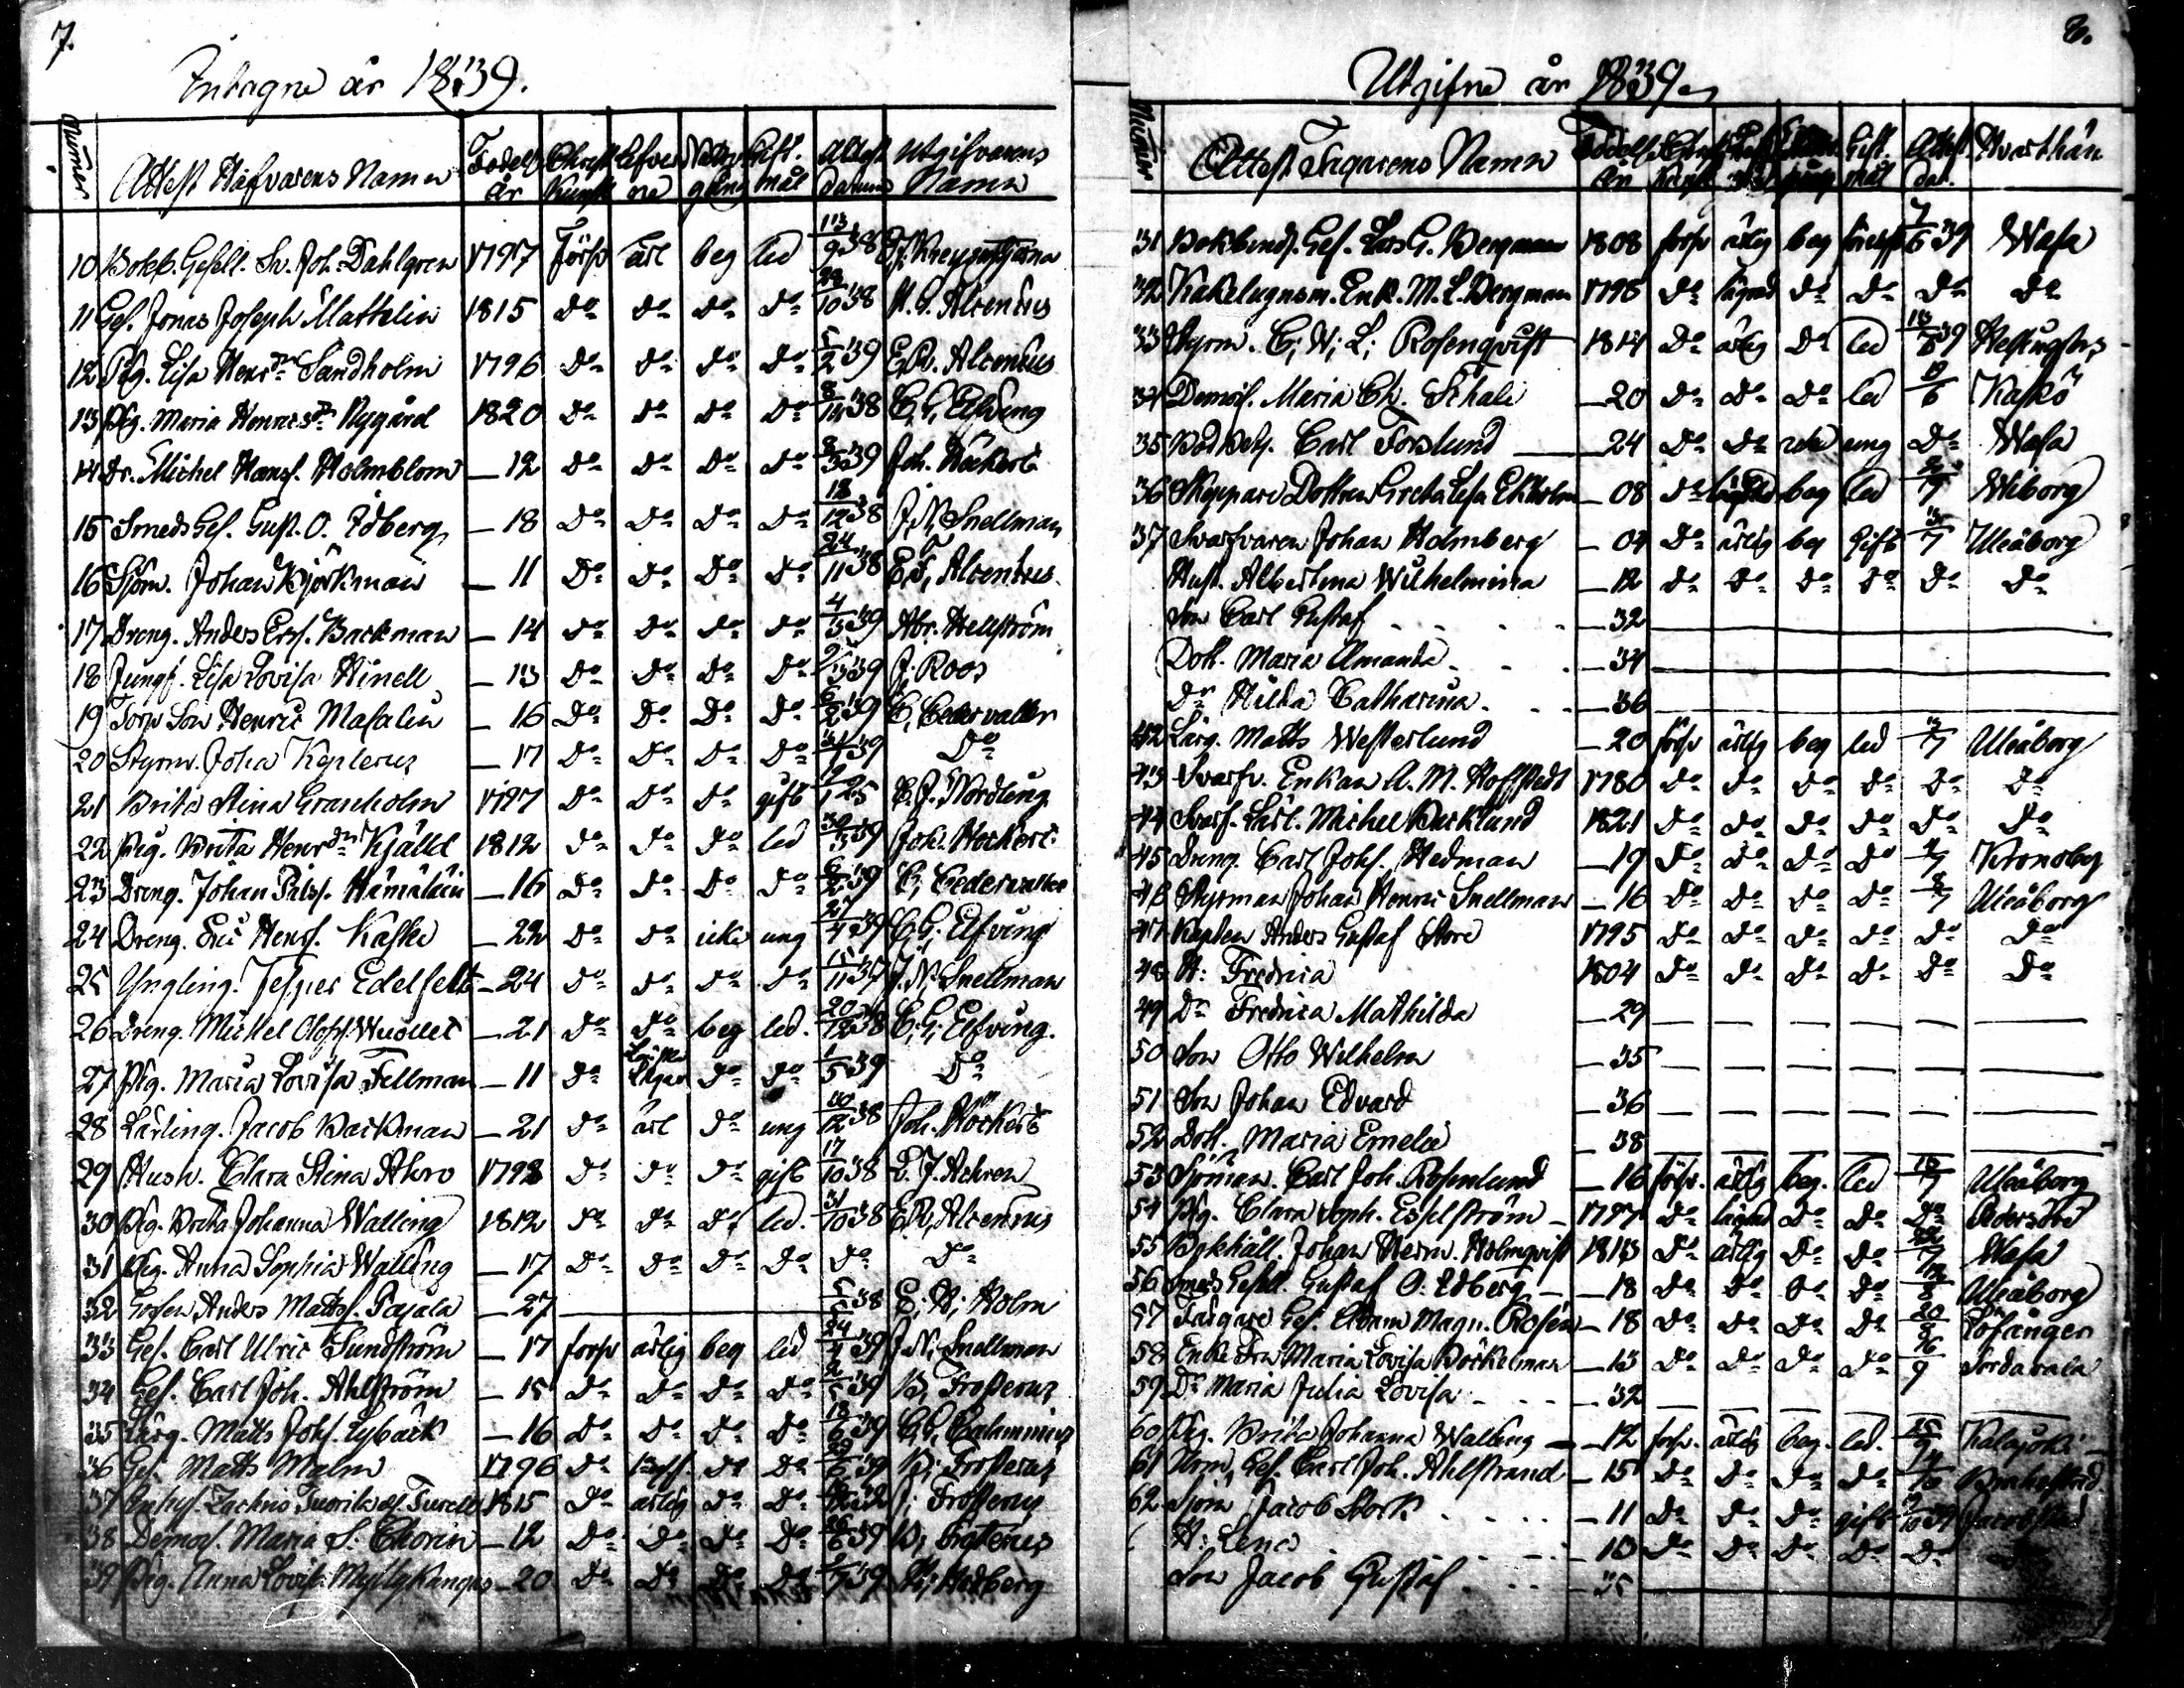 7.
Intagne år 1839.
Numer Attest Hafvarens Namn Födelse år Christ Kunsk Lefver ne Nattv gång Gift. mål Attest Datum Utgifvarens Namn
10 Bokb. Gesell. Joh. Dahlgren 1797 Försv ärl beg led 13/9 38
11 Ges. Jonas Joseph Mattelin 1815 Do Do Do Do 10 38 Alcenius
12 Pig. Lisa Henrdr Sandholm 1796 Do Do Do Do 5/2 39 Alcenius
13 Pig. Maria Henricsdr Nygård 1820 Do Do Do Do 8 38 C. G. Elfving
14 Dr. Michel Hansf. Holmblom – 12 Do Do Do Do 39 Joh. Höckert
15 Smeds Ges. Gust. O. Edberg – 18 Do Do Do Do 18/12 38 J. N. Snellman
16 Sjöm. Johan Björkman – 11 Do Do Do Do 24/11 38 Alcenius
17 Dreng. Anders Ersf. Backman – 14 Do Do Do Do 4/3 39 Abr. Hellström
18 Jungf. Lisa Lovisa Hinell – 13 Do Do Do Do 39 J. Roos
19 Torp Son Henric Masalin – 16 Do Do Do Do 6/2 39 C. Cedervaller
20 Styrm. Joha Keplerus – 17 Do Do Do Do 39 Do
21 Brita Stina Granholm 1797 Do Do Do gift 25 E. J. Nordling
22 Pig. Brita Henrdr Kjälld 1812 Do Do Do led 39 Joh. Höckert
23 Dreng. Johan Hämäläin – 16 Do Do Do Do 39 C. Cedervaller
24 Dreng. Eric Henrf. Kaske – 22 Do Do icke ung 27/4 39 C. G. Elfving
25 Yngling. Jesper Edelfelt – 24 Do Do Do Do 15/11 37 J. N. Snellman
26 Dreng. Michel Olofsf. – 21 Do Do beg led. 20/12 38 C. G. Elfving.
27 Pig. Maria Lovisa Fellman – 11 Do Do Do 1/5 39 Do
28 Lärling. Jacob Backman – 21 Do ärl Do ung 10/12 38 Joh. Höckert
29 Hush. Clara Stina Ahro 1798 Do Do Do gift 17/10 38 L. J. Achren
30 Pig. Brita Johanna Walling 1812 Do Do Do led. 31/10 38 Alcenius
31 Pig. Anna Sophia Walling – 17 Do Do Do Do Do Do
32 Gossen Anders Mattsf. Pajala – 27 5 38 E. H. Holm
33 Ges. Carl Ulric Sundström – 17 forsv ärlig beg led 24/4 39 J. N. Snellman
34 Ges. Carl Joh. Ahlström – 15 Do Do Do Do 2/5 39 B. Frosterus
35 Lärg. Matts Johf. Lybäck – 16 Do Do Do Do 13/6 39 C. G. Calamnius
36 Ges. Matts Malm 1796 Do Do Do 39 B. Frosterus
37 Zachris Turell 1815 Do ärlig Do Do Frosterus
38 Demos. Maria S. Chorin – 12 Do Do Do Do 26 39 B. Frosterus
39 Pig. Anna Lovis. Myllykangas – 20 Do Do Do Do 39 Hedberg
8.
Utgifne år 1839
Numer Attest Tagarens Namn Födelse år Gift. mål Attest dat. Hvarthän
31 Bokbind. Ges. Lars G. Bergman 1808 försv ärlig beg 7/6 39 Wasa
32 Kakelugnsm. Enk. M. L. Bergman 1798 Do lägrad Do Do Do Do
33 Styrm. C. W. L. Rosenqvist 1814 Do ärlig Do led 13/6 39
34 Demois. Maria Ch. Schale – 20 Do Do Do led /6 Kaskö
35 Bod Betj. Carl Forslund – 24 Do Do icke ung Do Wasa
36 Skeppare Dottren Greta Lisa Ekholm – 08 Do beg led /7 Wiborg
37 Svarfvaren Johan Holmberg – 04 Do ärlig beg Gift 3/7 Uleåborg
Hust. Albertina Wilhelmina – 12 Do Do Do Do Do Do
Son Carl Gustaf – 32
Dott. Maria Amanda – 34
Do Hilda Catharina – 36
42 Lärg. Matts Westerlund – 20 försv ärlig beg led 3/7 Uleåborg
43 Svarfv. Enkan A. M. Hoffstedt 1780 Do Do Do Do Do Do
44 Svarf. Lärl. Michel Backlund 1821 Do Do Do Do Do Do
45 Dreng. Carl Johf. Hedman – 19 Do Do Do Do /7 Kronoby
46 Styrman Johan Henric Snellman – 16 Do Do Do Do /7 Uleåborg
47 Kapten Anders Gustaf 1795 Do Do Do Do Do Do
48 H: Fredrica 1804 Do Do Do Do Do Do
49 Dr Fredrica Mathilda – 29
50 Son Otto Wilhelm – 35
51 Son Johan Edvard – 36
52 Dott. Maria Emelie – 38
53 Sjöman. Carl Joh. – 16 försv. ärlig beg. led /7 Uleåborg
54 Pig. Clara Soph. Esselström – 1797 Do lägrad Do Do Do
55 Bokhåll. Johan Herm. Holmqvist 1813 Do ärlig Do Do /7 Wasa
56 Smeds Gesell. Gustaf O. Edberg – – 18 Do Do Do Do /8 Uleåborg
57 Färgare Ges. Adam Magn. Rosén – 18 Do Do Do Do 20/8 Löfånger
58 Enke Fru Maria Lovisa Böckelman – 13 Do Do Do Do 16/9 Sordavala
59 Dr Maria Julia Lovisa – 32
60 Pig. Brita Johanna Walling – 12 forsv. ärlig beg. led. /9 Kalajoki
61 Ges. Carl Joh. Ahlstrand – 15 Do Do Do Do /10 Brahestad
62 Sjöm Jacob Stork – 11 Do Do Do gift /10 39 Jacobstad
H: Lena – 13 Do Do Do Do Do
Son Jacob Gustaf – 35